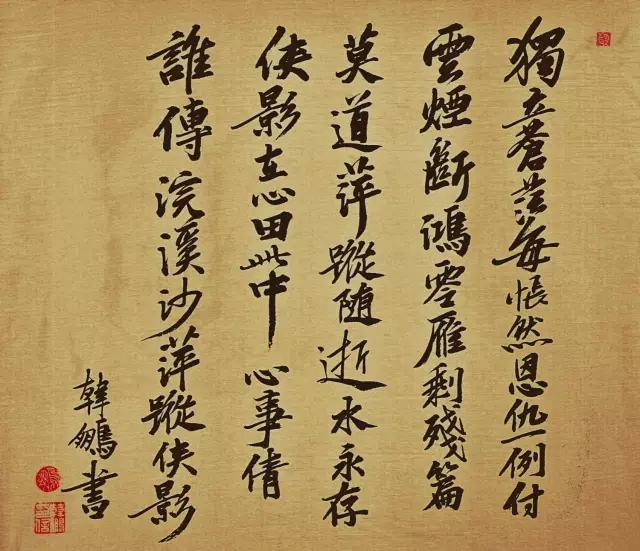 獨立蒼茫每悵然恩仇一例付
雲煙斷鴻零雁剩殘篇
莫道萍蹤随逝水永存
侠影在心田此中心事倩
誰傳浣溪沙萍蹤侠影
韓鵬書